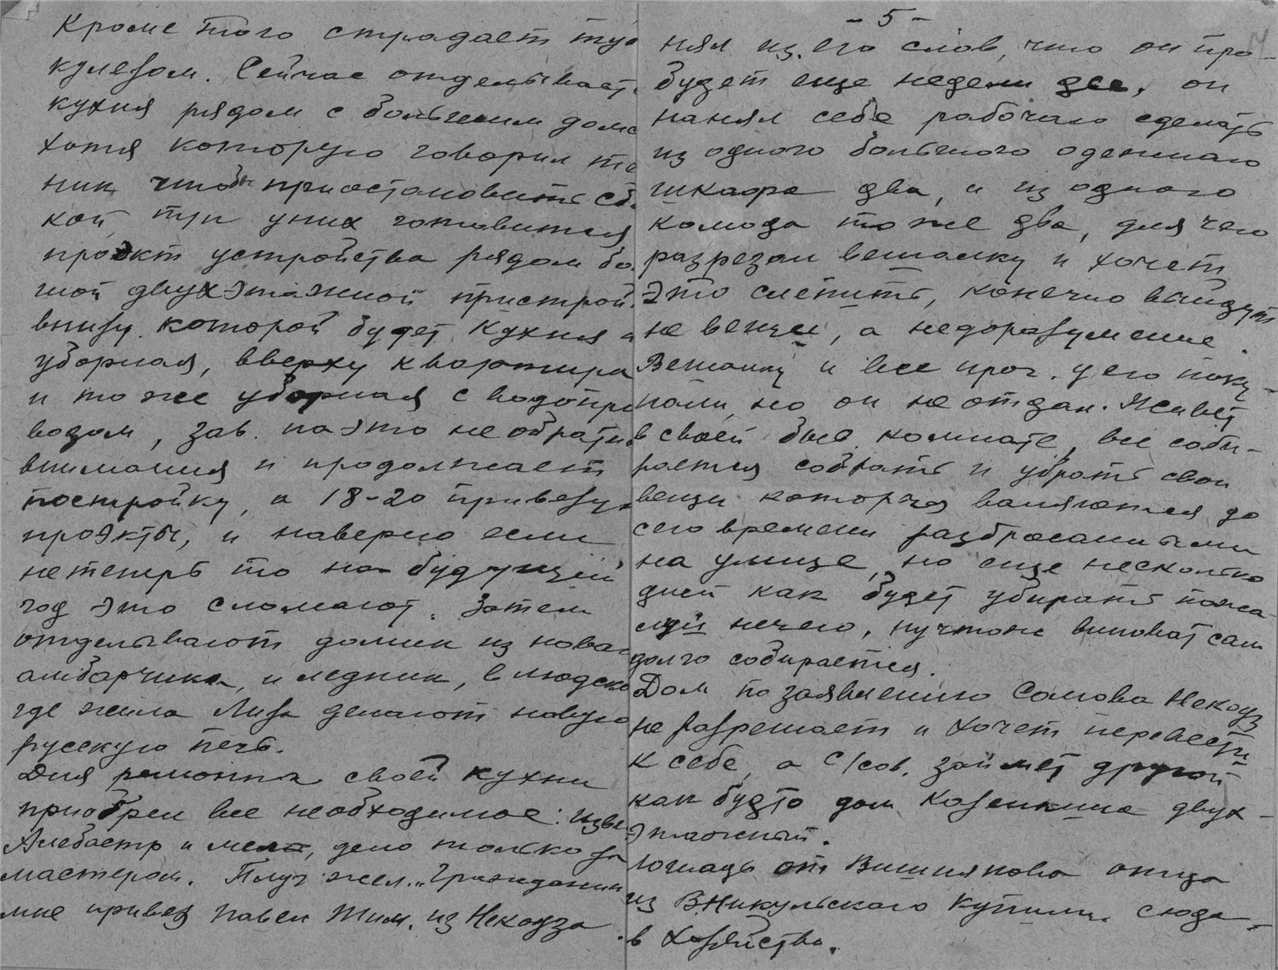 Кроме того страдает туб
кулезом. Сейчас отделывает
кухня рядом с большим домо
хотя которую говорил те
ник чтобы приостановить
кой, три у них готовится
проэкт устройства рядом бо
шой двухэтажной пристрой
внизу которой будет кухня и
уборная, вверху квартира
и тоже уборная с водопро
водом, зав. на это не обрати
внимания и продолжает
постройку, а 18-20 привезут
проэкты, и наверно если
не теперь то на будущий
год это сломают. Затем
отделывают домик из нова
амбарчика, и ледник, в людско
где жила Лиза делают новую
русскую печь.
Для ремонта своей кухни
приобрел все необходимое: изве
Алебастр и мела, дело только за
мастером. Плуг жел. "Гражданин
мне привез Павел Тим. из Некоуза.
- 5 -
нял из его слов, что он про-
будет еще недели две, он
нанял себе рабочего сделать
из одного большого одежного
шкафа два, и из одного
комода тоже два, для чего
разрезал вешалку и хочет
это слепить, конечно выйдут
не вещи, а недоразумение.
Вешалку и все проч. у его поку-
пали, но он не отдал. Живет
в своей быв. комнате, все соби-
рается собрать и убрать свои
вещи которыя валяются до
сего времени разбросанными
на улице, но еще несколько
дней как будет убирать пожа-
луй нечего, ну что же виноват сам
долго собирается.
Дом по заявлению Сомова Некоуз
не разрешает и хочет перевести
к себе, а с/сов. займет другой
как будто дом Козенкина двух-
этажный.
Лошадь от Вишнякова отца
из В.Никульского купили сюда
в хозяйство.